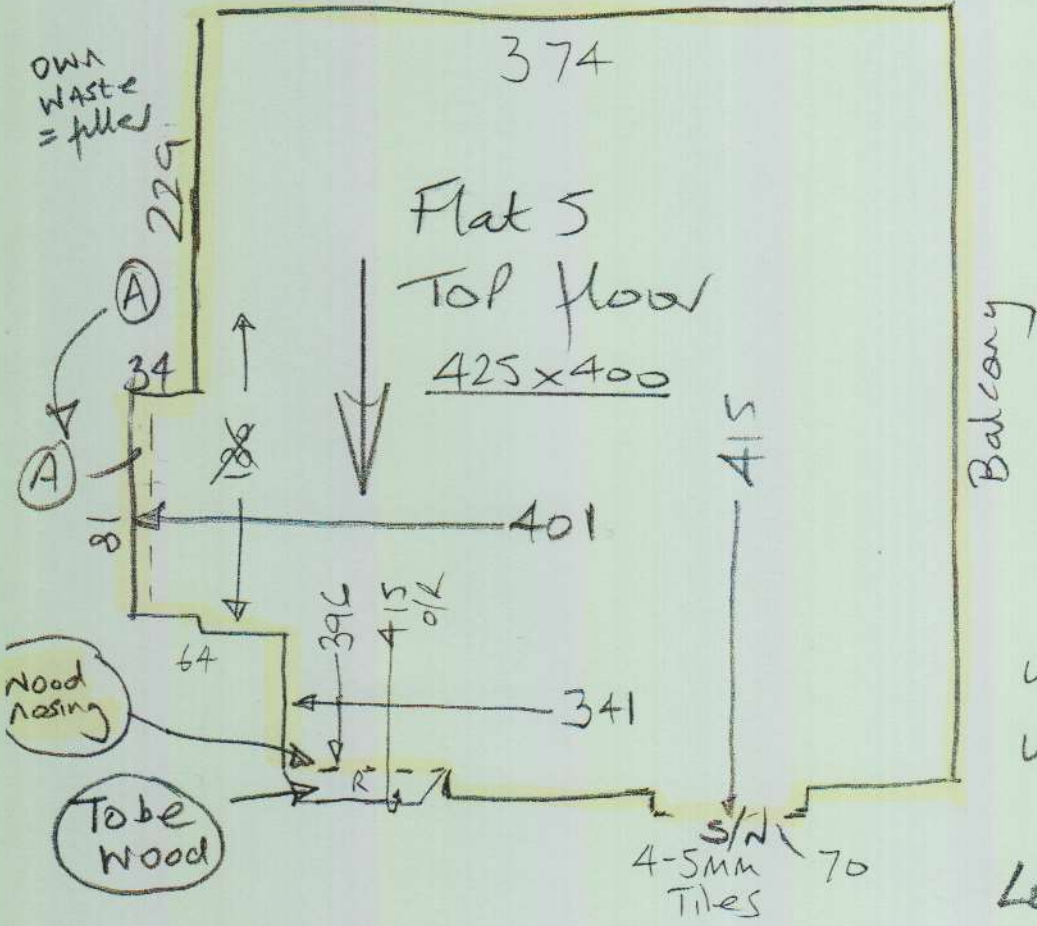 374
OWN
WASTE
= filler
229
Flat 5
TOP floor
425x400
A
34
A
81
186
401
415
Balcony
396
415
O/R
64
Wood
nosing
341
R
To be
Wood
S/N
4-5MM
Tiles
70